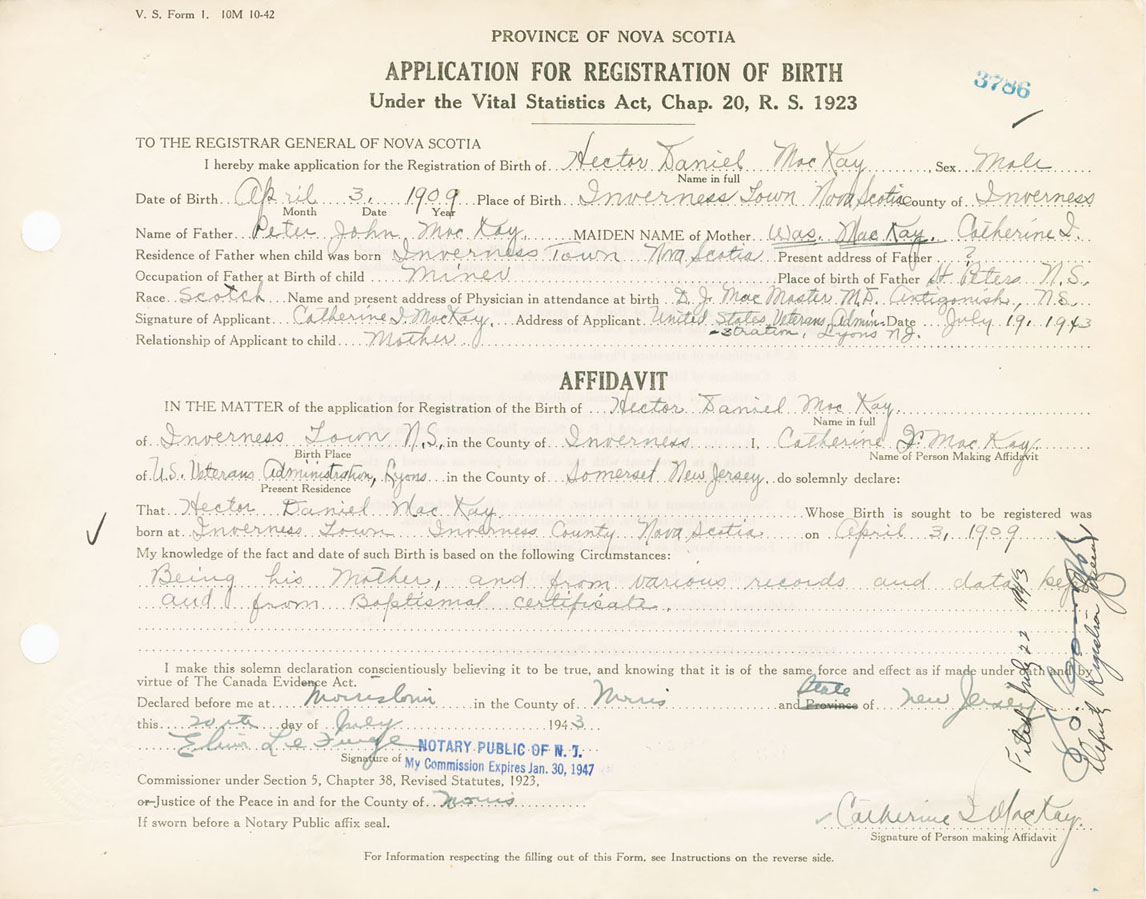 V. S. Form 1. 10M 10-42
PROVINCE OF NOVA SCOTIA
APPLICATION FOR REGISTRATION OF BIRTH
3786
Under the Vital Statistics Act, Chap. 20, R. S. 1923
TO THE REGISTRAR GENERAL OF NOVA SCOTIA
I hereby make application for the Registration of Birth of Hector Daniel MacKay, Sex Male
Name in full
Date of Birth April 3, 1909 Place of Birth Inverness Town Nova Scotia County of Inverness
Month Date Year
Name of Father Peter John MacKay MAIDEN NAME of Mother was MacKay, Catherine I.
Residence of Father when child was born Inverness Town Nova Scotia Present address of Father ?
Occupation of Father at Birth of child Miner Place of birth of Father St. Peters N.S.
Race Scotch Name and present address of Physician in attendance at birth D. J. MacMaster M.D. Antigonish, N.S.
Signature of Applicant Catherine I. MacKay, Address of Applicant United States Veterans Admin- Date July 19, 1943
-stration, Lyons N.J.
Relationship of Applicant to child Mother
AFFIDAVIT
IN THE MATTER of the application for Registration of the Birth of Hector Daniel MacKay
Name in full
of Inverness Town N.S., in the County of Inverness I, Catherine I. MacKay
Birth Place Name of Person Making Affidavit
of U.S. Veterans Administration, Lyons in the County of Somerset New Jersey, do solemnly declare:
Present Residence
That Hector Daniel MacKay Whose Birth is sought to be registered was
born at Inverness Town Inverness County Nova Scotia on April 3, 1909
My knowledge of the fact and date of such Birth is based on the following Circumstances:
Being his Mother, and from various records and data kept
and from Baptismal certificate.
I make this solemn declaration conscientiously believing it to be true, and knowing that it is of the same force and effect as if made under oath and by
virtue of The Canada Evidence Act.
State
Declared before me at Morristown in the County of Morris and Province of New Jersey
this 20th day of July 1943
NOTARY PUBLIC OF N. J.
Signature of My Commission Expires Jan. 30, 1947
Commissioner under Section 5, Chapter 38, Revised Statutes, 1923,
or Justice of the Peace in and for the County of Morris
If sworn before a Notary Public affix seal.
Catherine I MacKay
Signature of Person making Affidavit
For Information respecting the filling out of this Form, see Instructions on the reverse side.
Filed July 22 1943
Deputy Registrar General